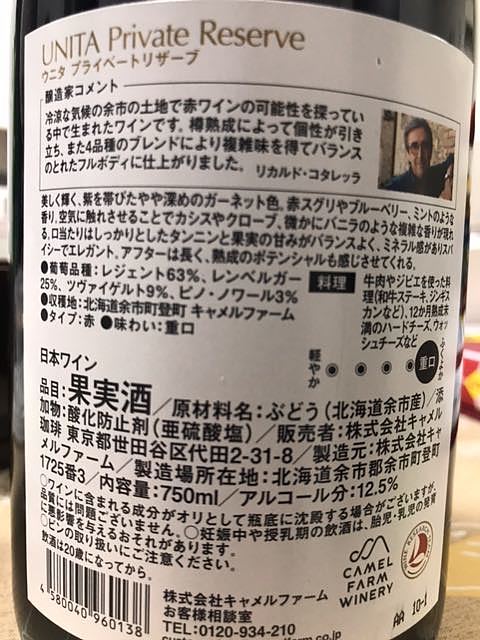 UNITA Private Reserve
ウニタ プライベートリザーブ
醸造家コメント
冷涼な気候の余市の土地で赤ワインの可能性を探ってい
る中で生まれたワインです。樽熟成によって個性が引き
立ち、また4品種のブレンドにより複雑味を得てバランス
のとれたフルボディに仕上がりました。 リカルド・コタレッラ
美しく輝く、紫を帯びたやや深めのガーネット色。赤スグリやブルーベリー、ミントのような
香り、空気に触れさせることでカシスやクローブ、微かにバニラのような複雑な香りが現れ
る。口当たりはしっかりとしたタンニンと果実の甘みがバランスよく、ミネラル感がありスパ
イシーでエレガント。アフターは長く、熟成のポテンシャルも感じさせてくれる。
●葡萄品種:レジェント63%、レンベルガー
25%、ツヴァイゲルト9%、ピノ・ノワール3%
●収穫地:北海道余市町登町 キャメルファーム
●タイプ:赤 ●味わい:重口
料理
牛肉やジビエを使った料
理(和牛ステーキ、ジンギス
カンなど)、12か月熟成未
満のハードチーズ、ウォッ
シュチーズなど
軽やか
重口
ふくよか
日本ワイン
品目:果実酒/原材料名:ぶどう(北海道余市産)/添
加物:酸化防止剤(亜硫酸塩)/販売者:株式会社キャメル
珈琲 東京都世田谷区代田2-31-8/製造元:株式会社キャ
メルファーム/製造場所在地:北海道余市郡余市町登町
1725番3/内容量:750ml/アルコール分:12.5%
○ワインに含まれる成分がオリとして瓶底に沈殿する場合がございますが、
品質には問題ございません。○妊娠中や授乳期の飲酒は、胎児・乳児の発育
に悪影響を与えるおそれがあります。
○ビンの取り扱いにご注意ください。
飲酒は20歳になってから。
4580040960138
株式会社キャメルファーム
お客様相談室
TEL:0120-934-210
CAMEL
FARM
WINERY
AA 10-1